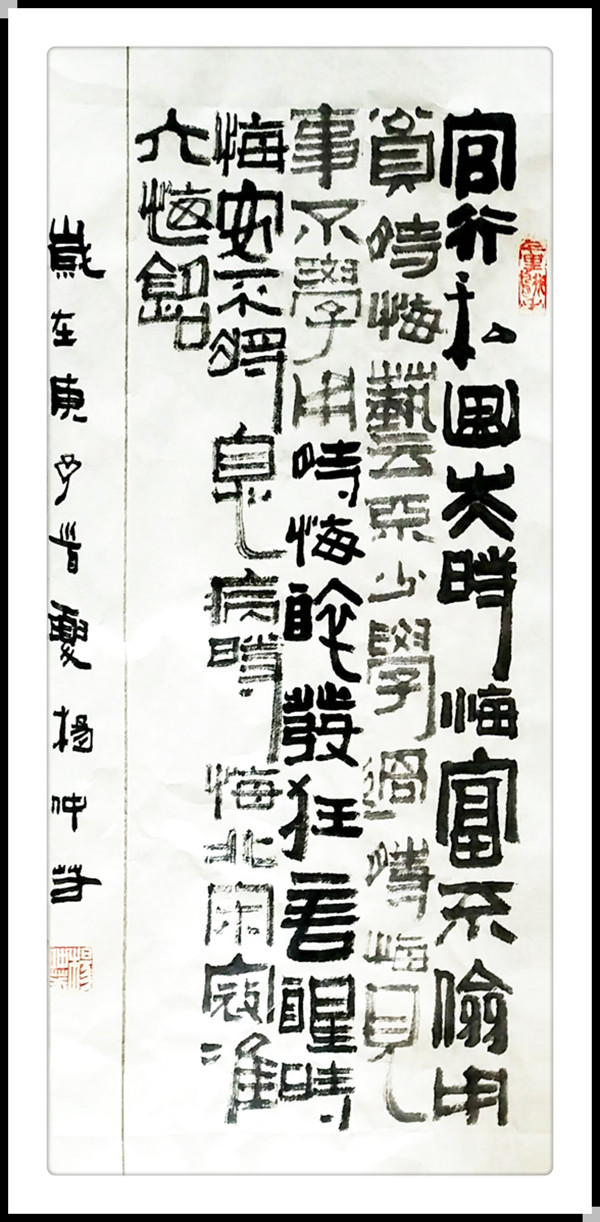 官行私曲失時悔富不儉用
貧時悔藝不少學過時悔見
事不學用時悔醉發狂言醒時
悔安不將息病時悔北宋寇準
六悔銘
歲在庚子首夏楊仲